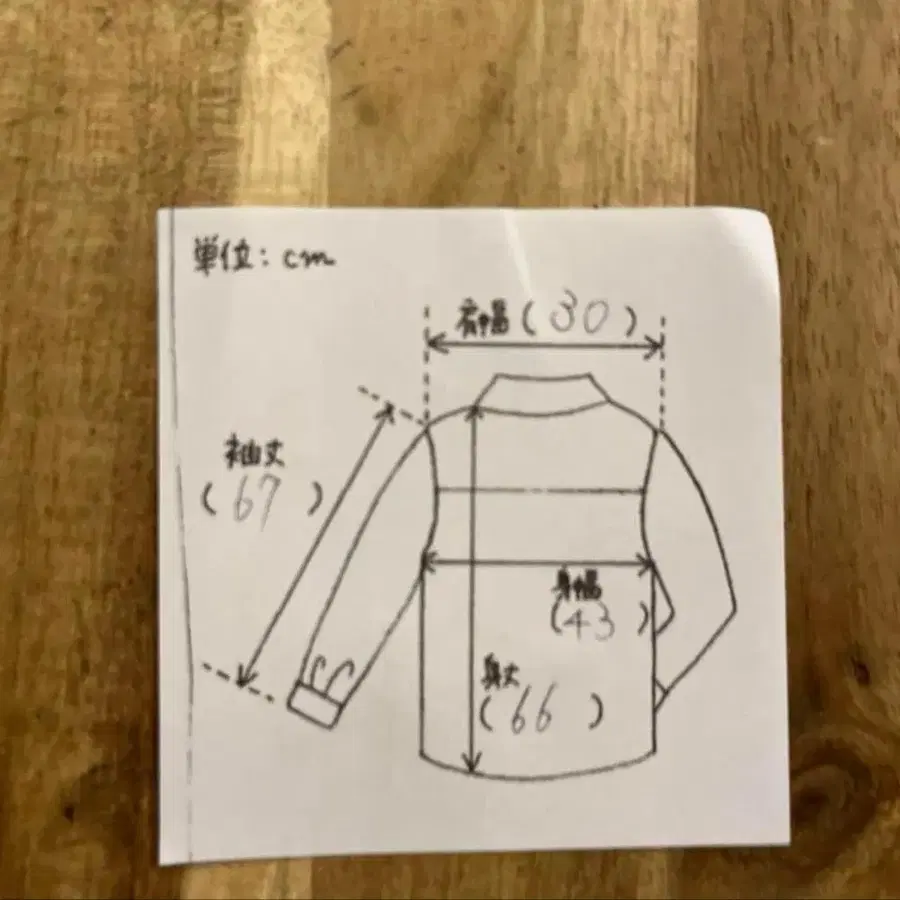 単位：cm
肩幅(30)
袖丈
(67)
身幅
(43)
身丈
(66)